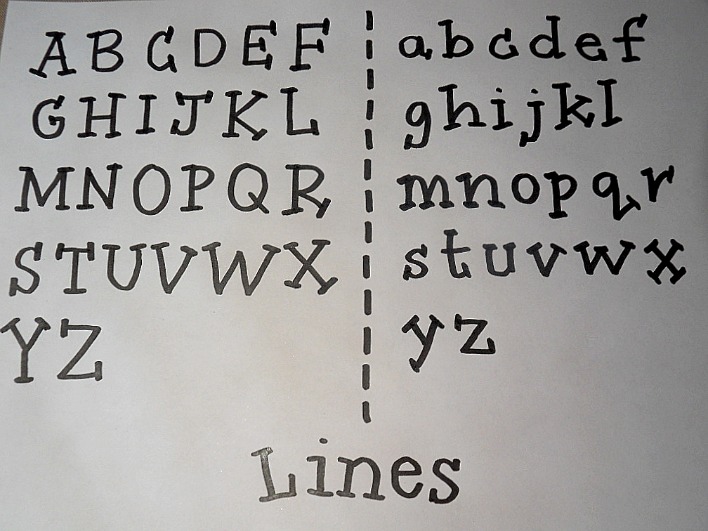 A B C D E F
G H I J K L
M N O P Q R
S T U V W X
Y Z
a b c d e f
g h i j k l
m n o p q r
s t u v w x
y z
Lines